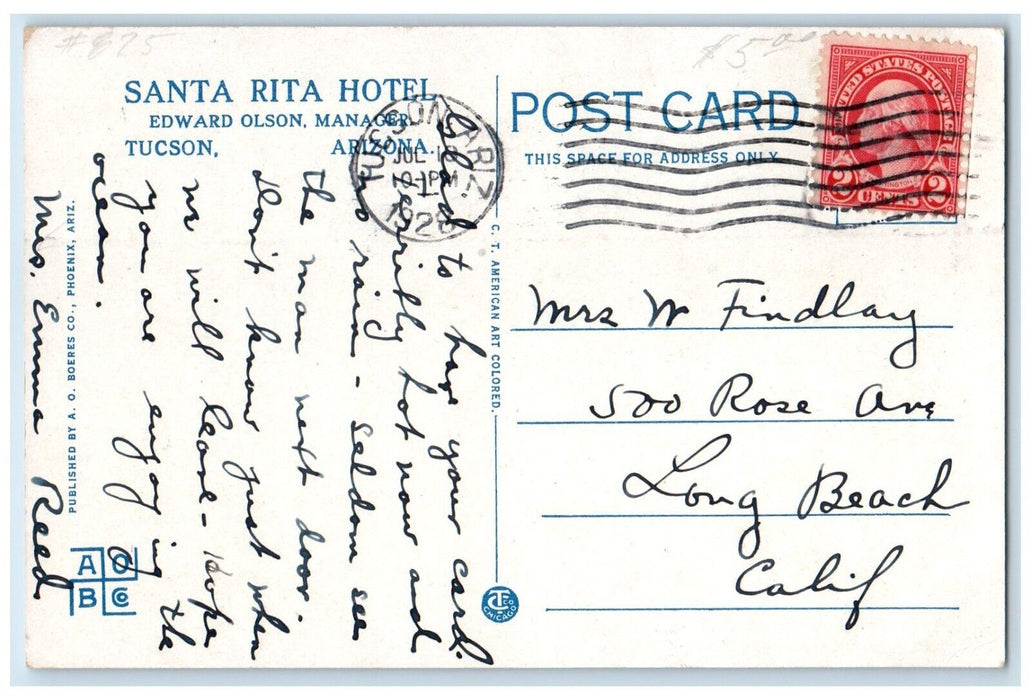 #875
$5.00
SANTA RITA HOTEL
EDWARD OLSON, MANAGER.
TUCSON, ARIZONA.
POST CARD
THIS SPACE FOR ADDRESS ONLY
TUCSON, ARIZ.
JUL 1
PM
1928
UNITED STATES POSTAGE
2 CENTS 2
Glad to have your card.
Terribly hot now and
no rain - seldom see
the man next door.
Don't know just when
we will leave - Hope
you are enjoying the
ocean.
Mrs. Emma Reed
Mrs W Findlay
500 Rose Ave
Long Beach
Calif
C. T. AMERICAN ART COLORED.
PUBLISHED BY A. O. BOERES CO., PHOENIX, ARIZ.
A O
B Co
CT CO
CHICAGO